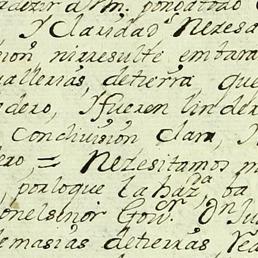 y Claridad Nezesa
sion, ni rresulte embara
uallerias, de tierra que
dero, y fueren linder
Conclusion Clara, y
ero = Nezesitamos
por lo que la haz.da
on el señor Gov.or Dn Ju
emasias de tierras,